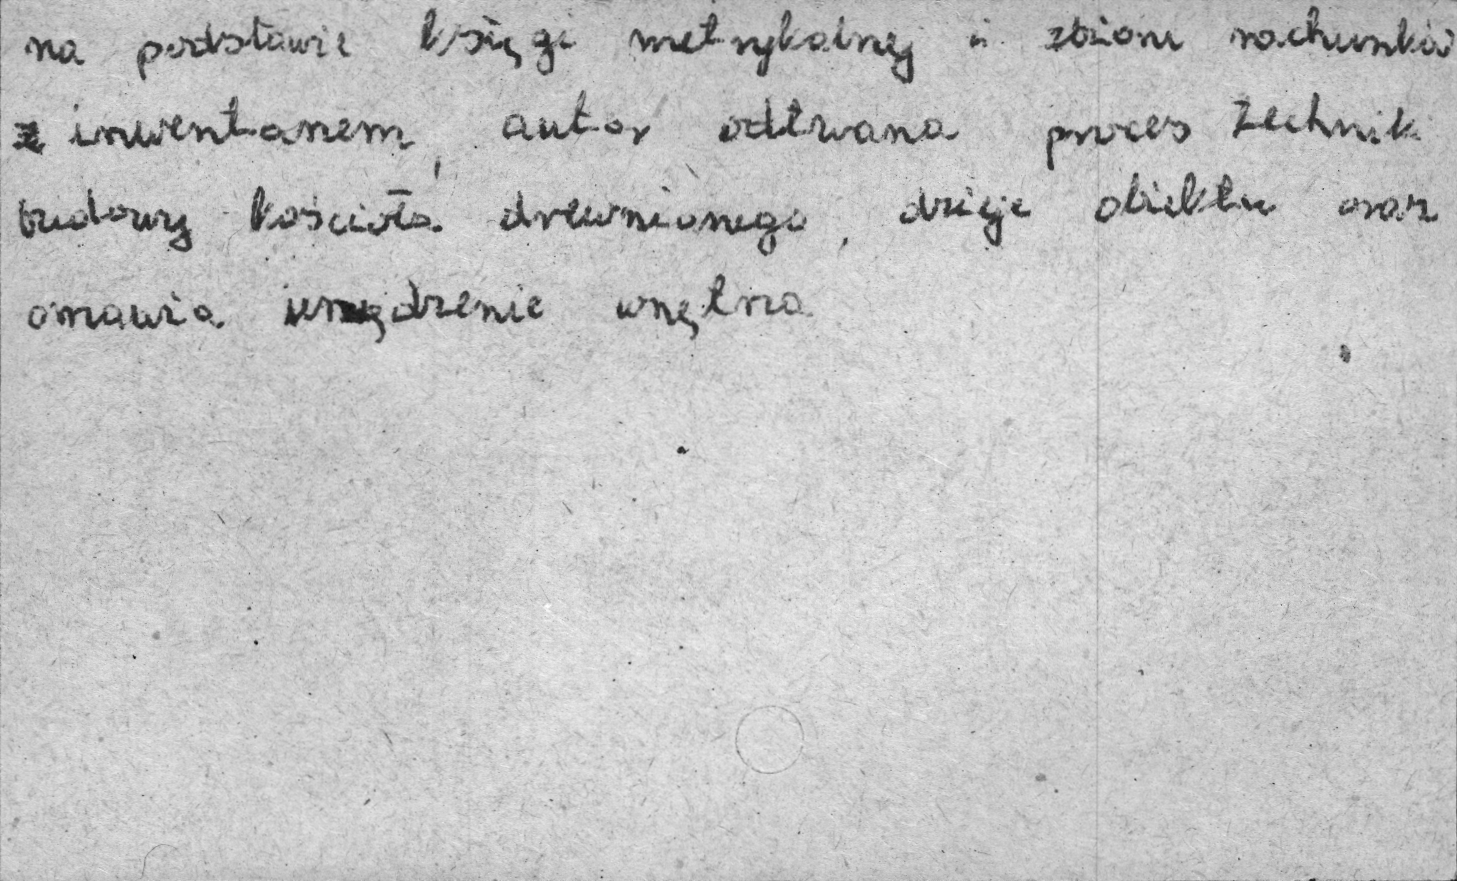 na podstawie księgi metrykalnej i zbioru rachunków
z inwentarzem, autor odtwarza proces techniki
budowy kościoła drewnianego, dzieje obiektu oraz
omawia urządzenie wnętrza